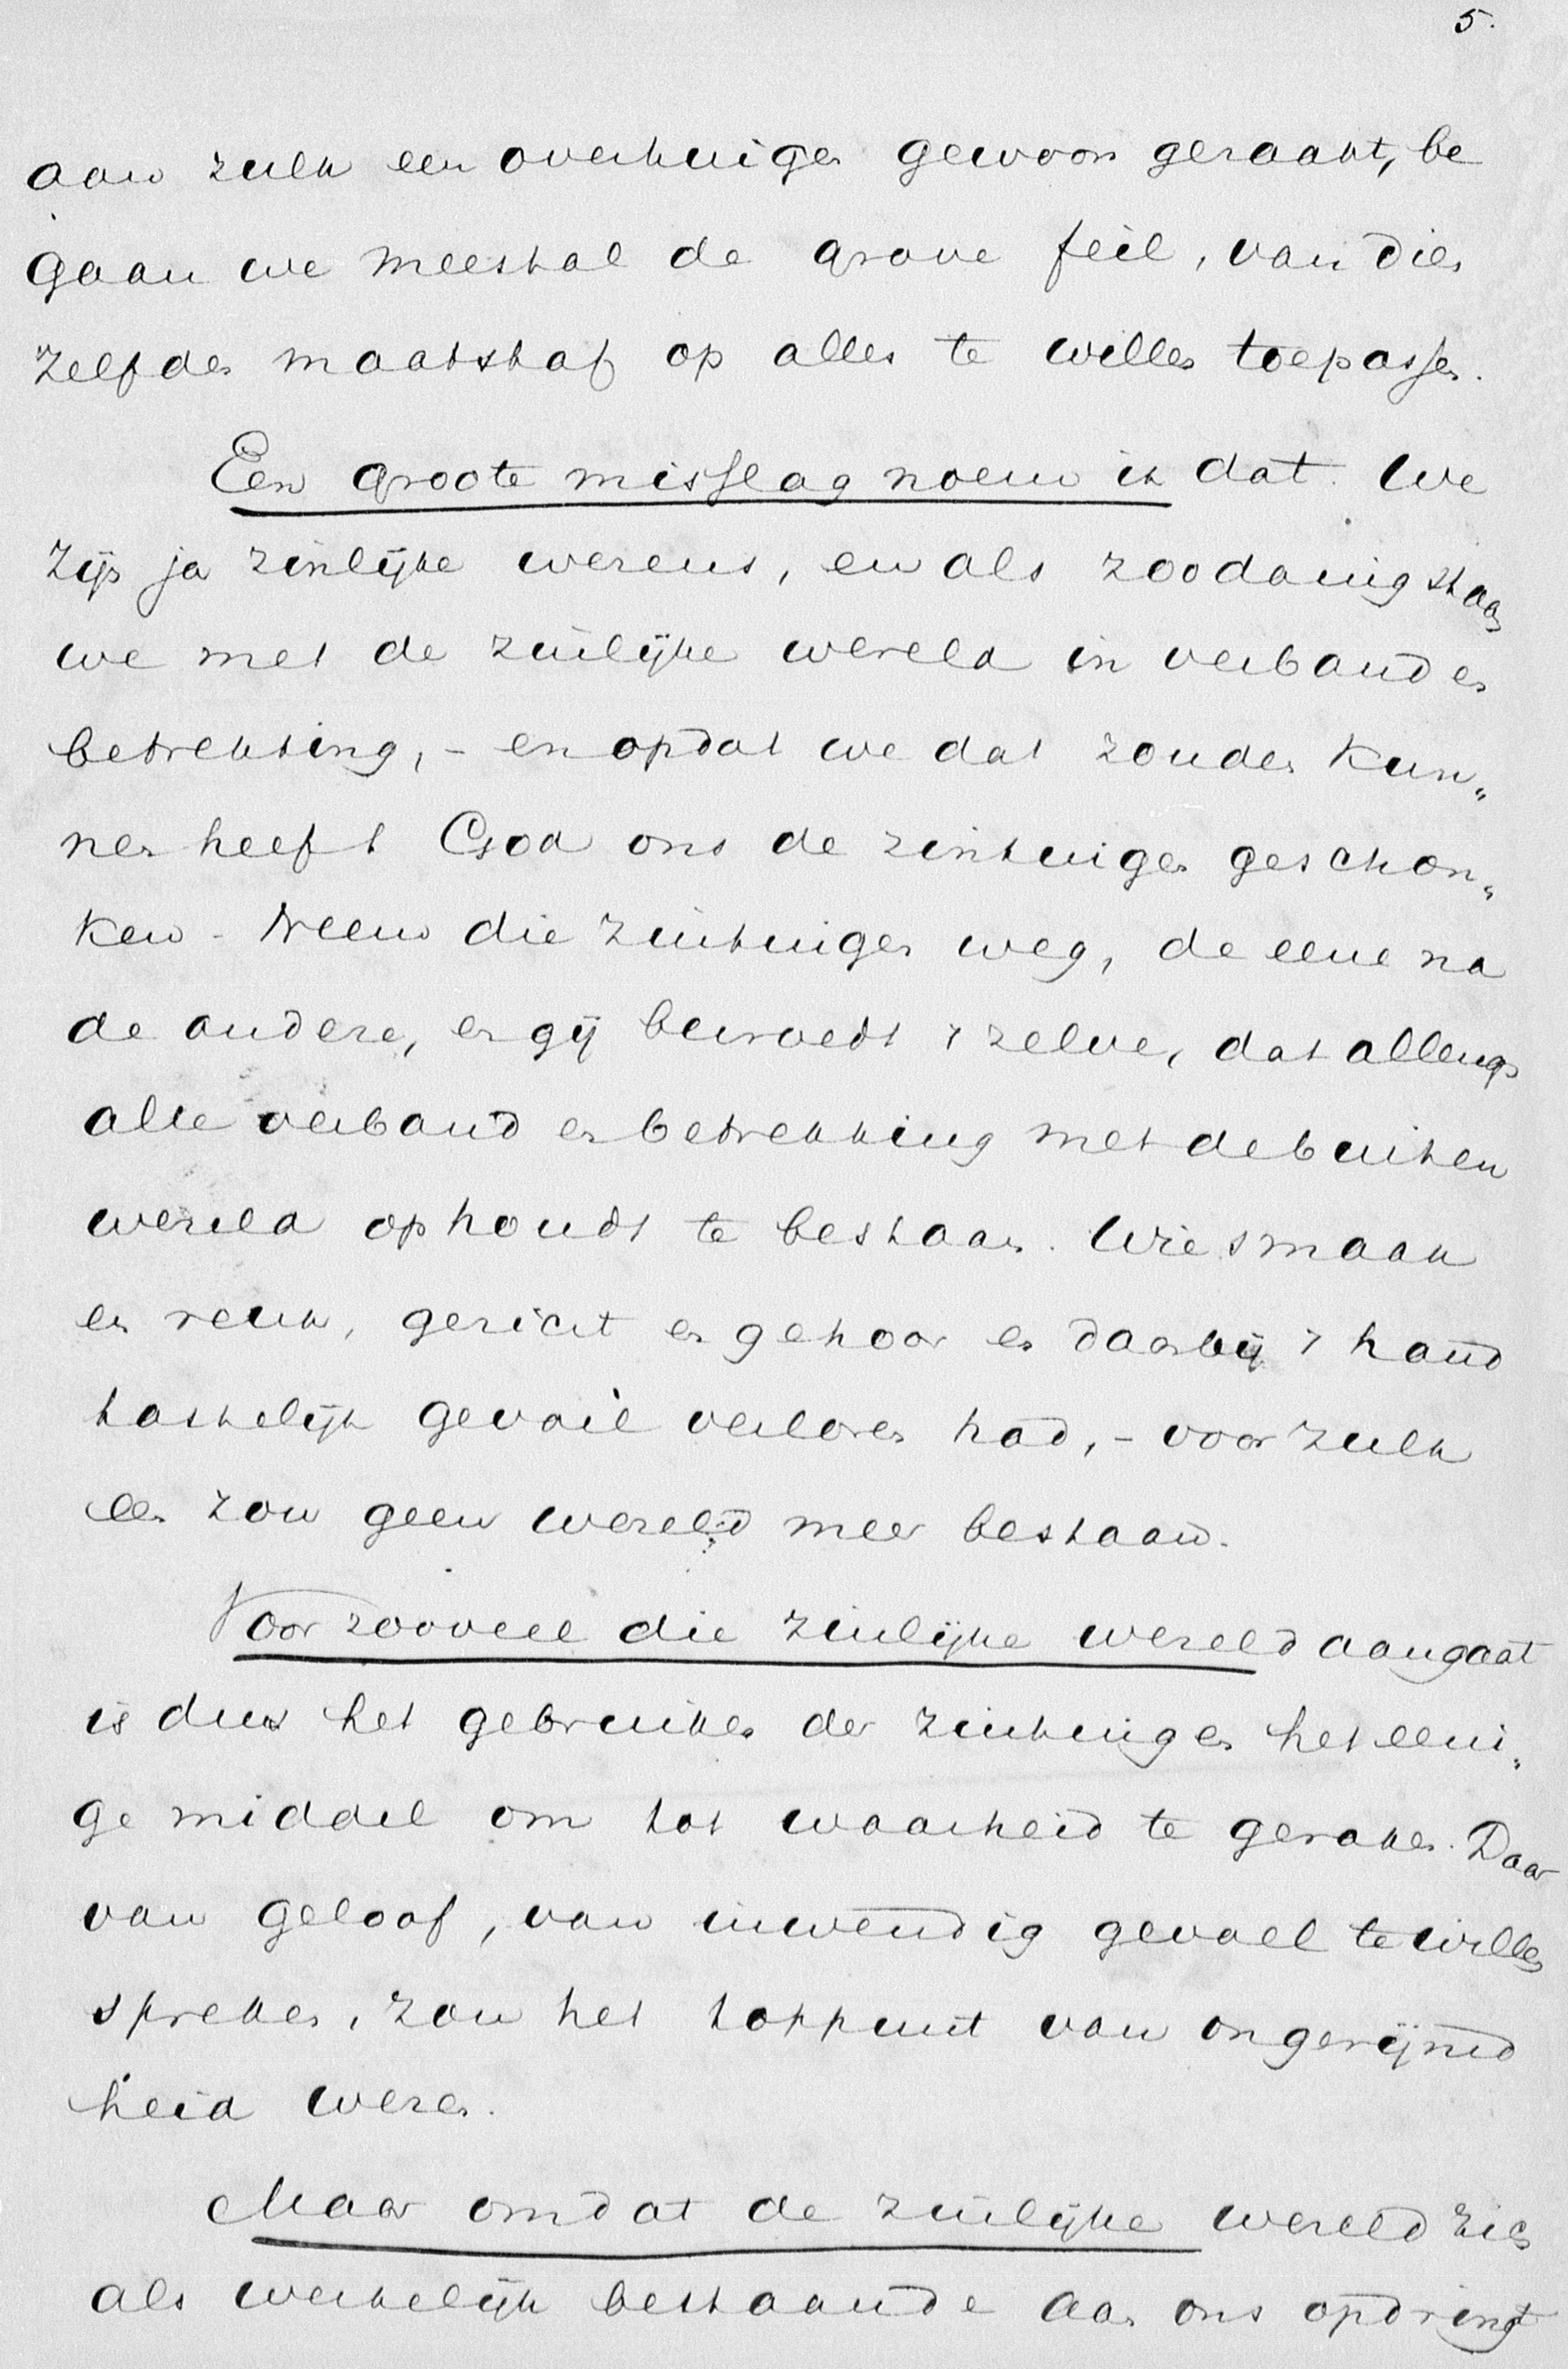 5.
aan zulk een overtuigen gewoon geraakt, be
gaan we meestal de grove feil, van dien
zelfden maatstaf op alles te willen toepassen.
Een groote misslag noem ik dat. We
zijn ja zinlijke wezens, en als zoodanig staan
we met de zinlijke wereld in verband en
betrekking, - en opdat we dat zouden kun„
nen heeft God ons de zintuigen geschon„
ken - Neem die zintuigen weg, de eene na
de andere, en gij bevroedt 't zelve, dat allengs
alle verband en betrekking met de buiten
wereld ophoudt te bestaan. Wie smaak
en reuk, gezicht en gehoor en daarbij 't hand
tastelijk gevoel verloren had, - voor zulk
een zou geen wereld meer bestaan.
Voor zooveel die zinlijke wereld aangaat
is dus het gebruiken der zintuigen het eeni„
ge middel om tot waarheid te geraken. Daar
van geloof, van inwendig gevoel te willen
spreken, zou het toppunt van ongerijmd
heid wezen.
Maar omdat de zinlijke wereld zich
als werkelijk bestaande aan ons opdringt